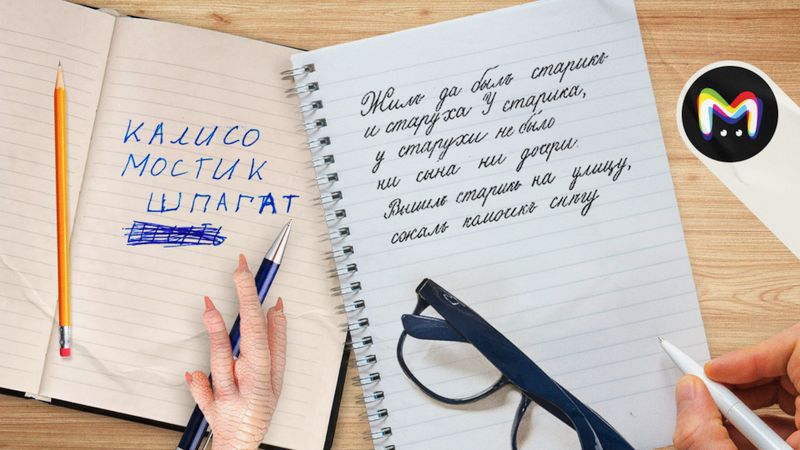 КАЛИСО
МОСТИК
ШПАГАТ
Жилъ да былъ старикъ
и старуха У старика,
у старухи не было
ни сына ни дочри.
Вышелъ старикъ на улицу,
снѣгу